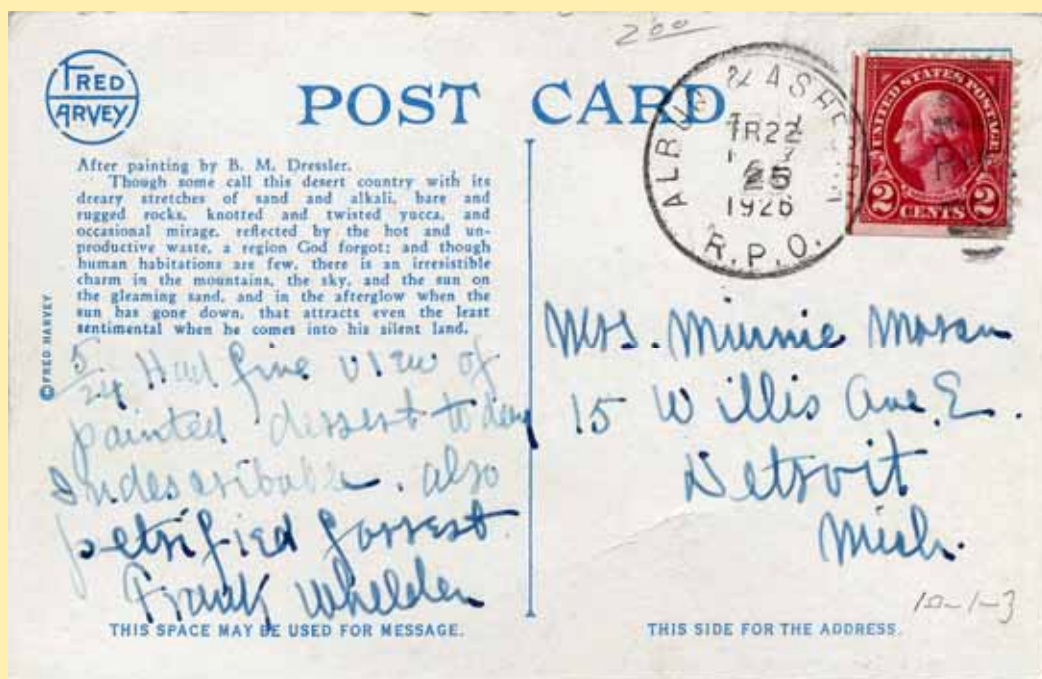 200
FRED HARVEY
POST CARD
ALBUQ & ASH
TR 22
25
1926
R.P.O.
UNITED STATES POSTAGE
2 CENTS 2
After painting by B. M. Dressler.
Though some call this desert country with its
dreary stretches of sand and alkali, bare and
rugged rocks, knotted and twisted yucca, and
occasional mirage, reflected by the hot and un-
productive waste, a region God forgot; and though
human habitations are few, there is an irresistible
charm in the mountains, the sky, and the sun on
the gleaming sand, and in the afterglow when the
sun has gone down, that attracts even the least
sentimental when he comes into his silent land.
©FRED HARVEY
5/24 Had fine view of
painted dessert today
Indescribable. also
petrified forrest.
Frank Whelden
THIS SPACE MAY BE USED FOR MESSAGE.
Mrs. Minnie Moran
15 Willis Ave E.
Detroit
Mich.
10-1-3
THIS SIDE FOR THE ADDRESS.